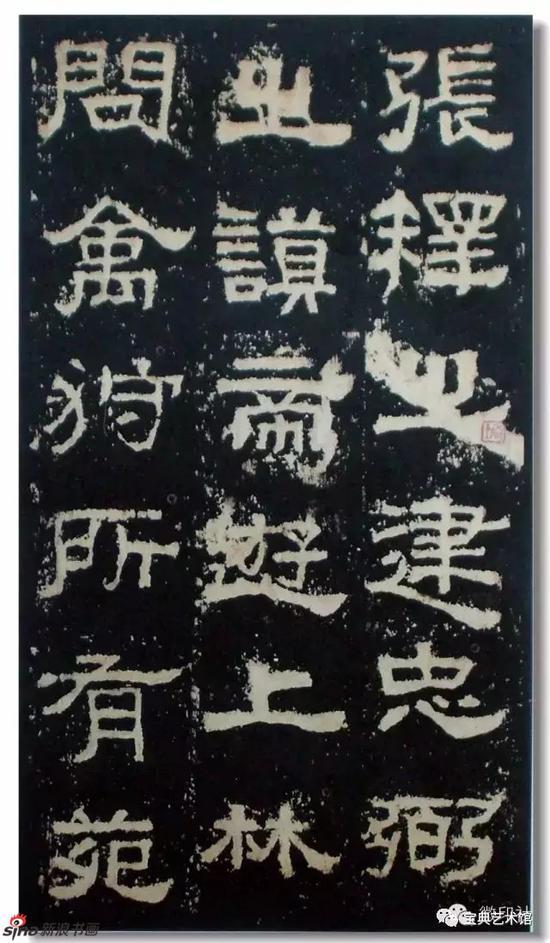 張釋之建忠弼
之謨帝遊上林
問禽狩所有苑
sina新浪书画
微印社
宝典艺术馆